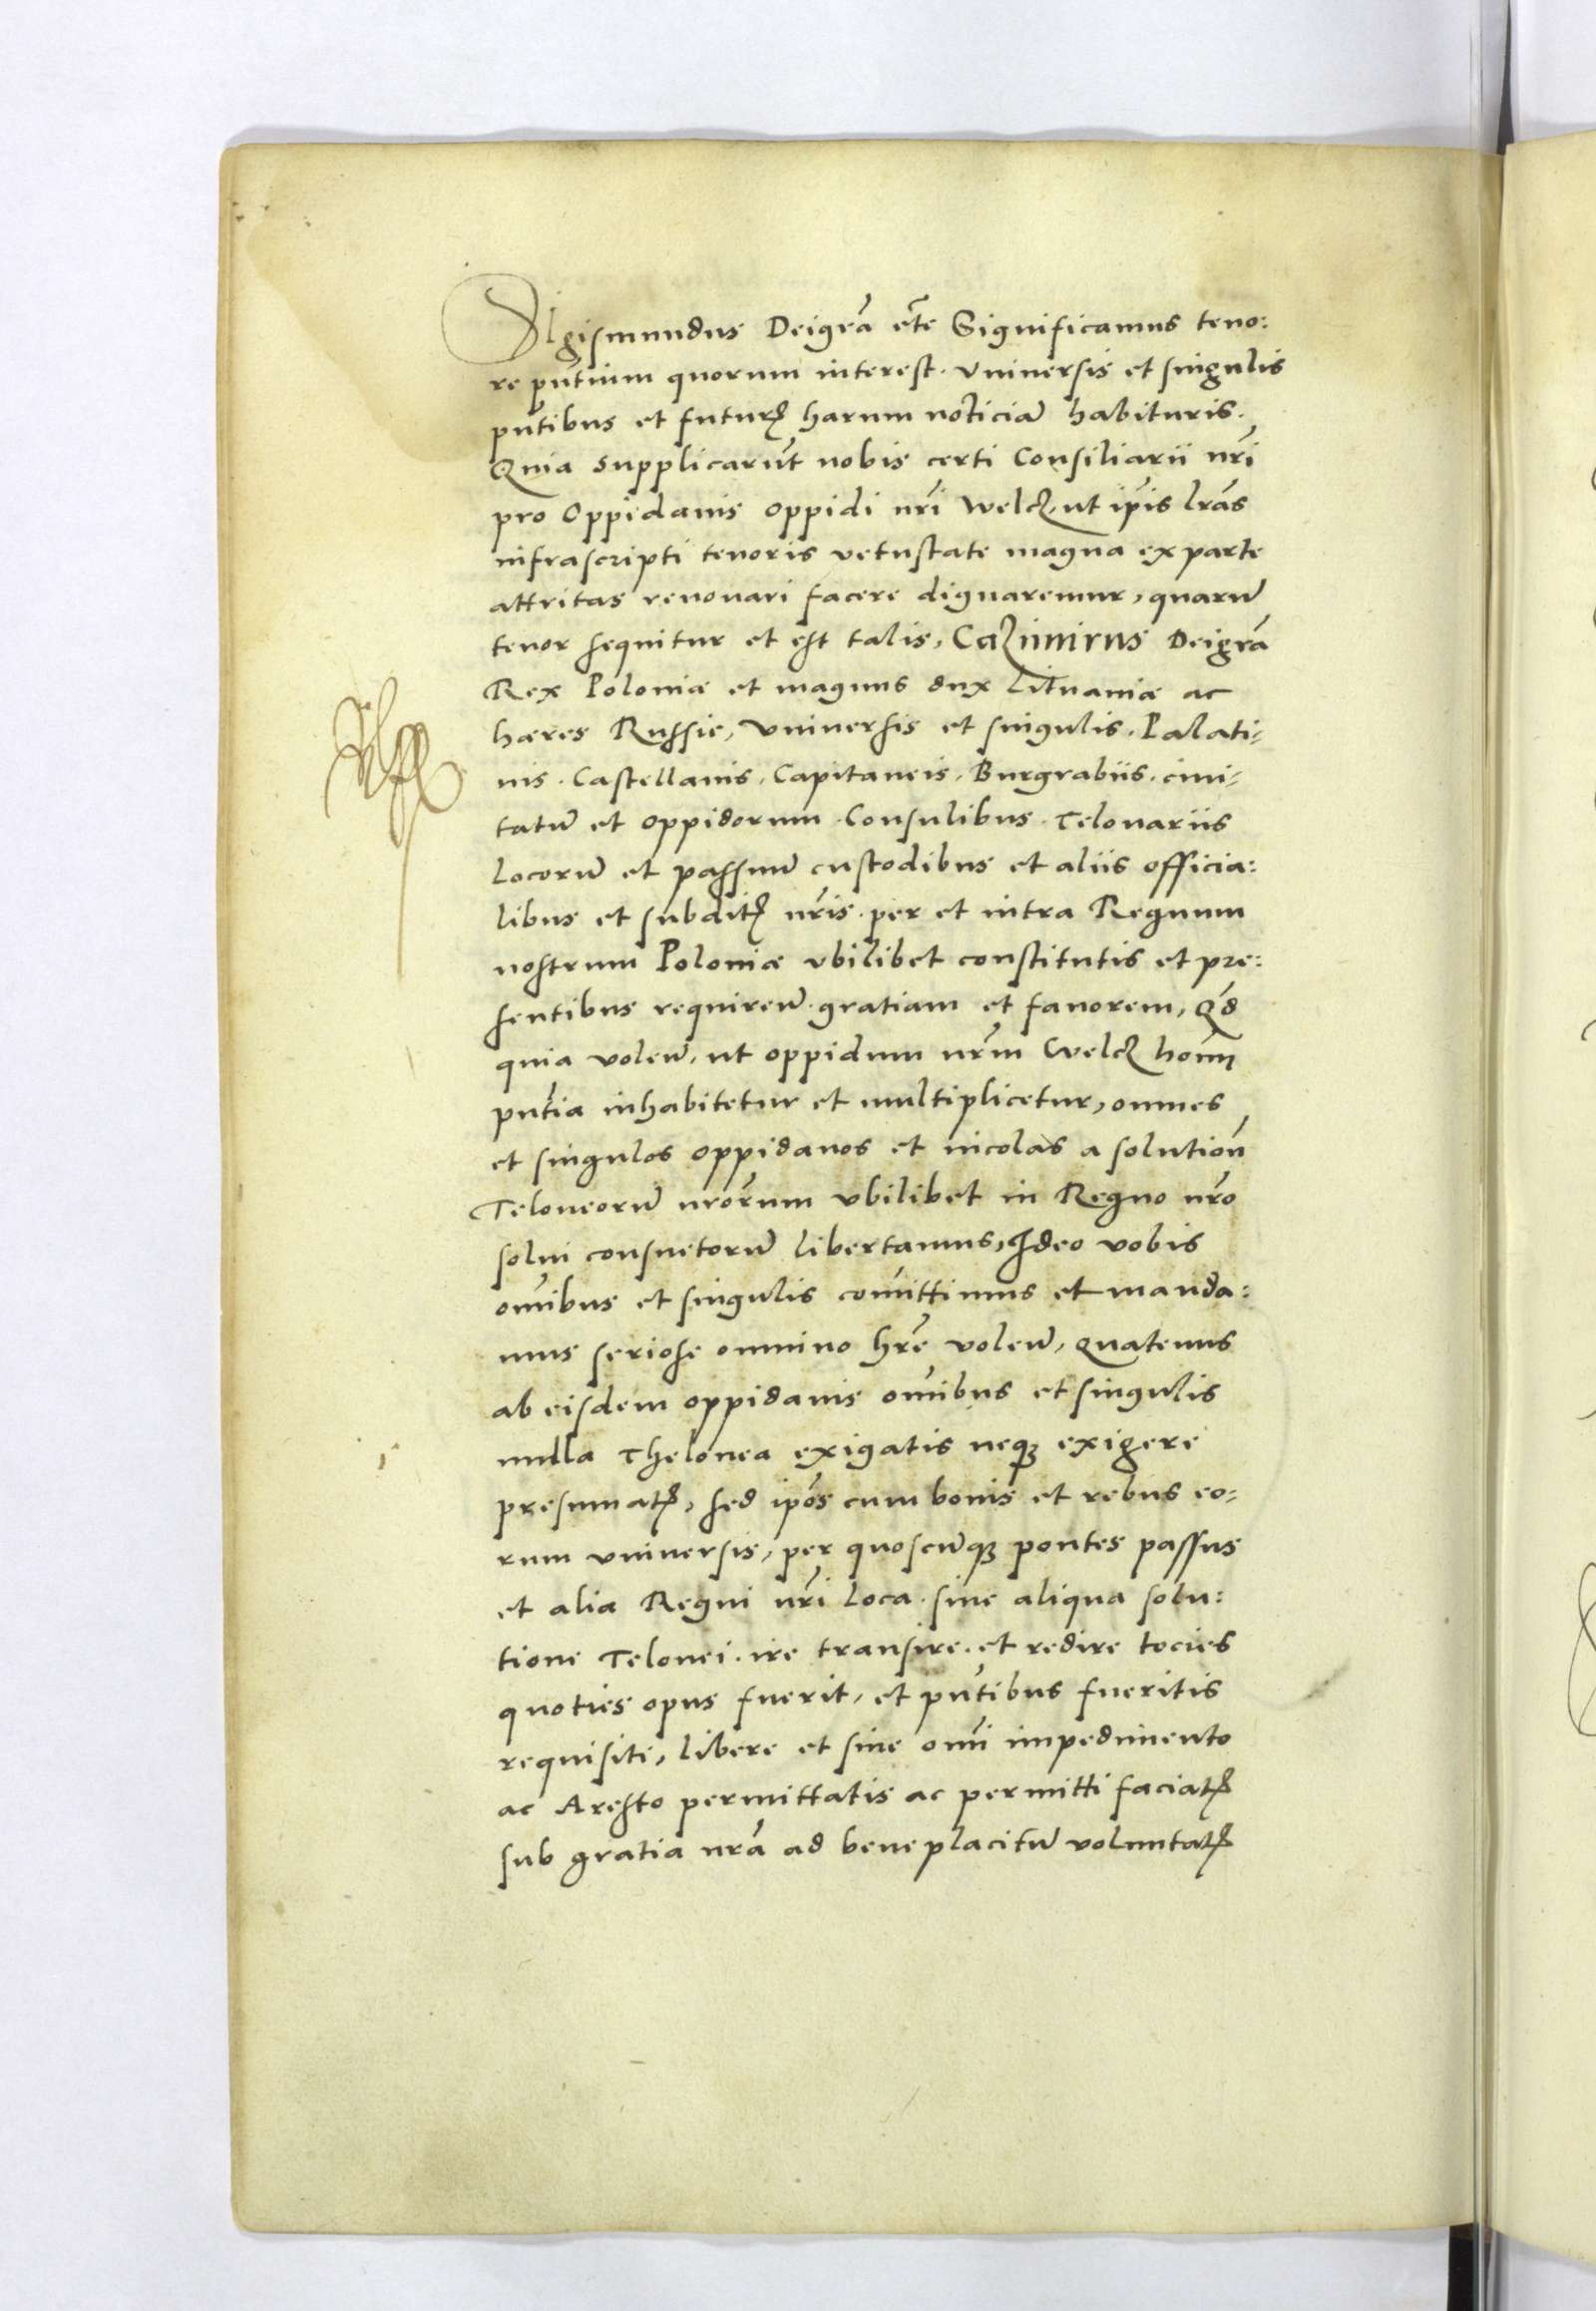 Sigismundus Deigrā etē Significamus teno:
re pñtium quorum interest. Vniuersis et singulis
pñtibus et futurꝭ harum noticiā habituris.
Quia supplicarūt nobis certi Consiliarii nr̄i
pro Oppidanis oppidi nr̄i Welcꝫ, ut ip̄is lr̄as
infrascripti tenoris vetustate magna ex parte
attritas renouari facere dignaremur, quarū
tenor sequitur et est talis, Cazimirus Deigrā
Rex Poloniæ et magnus dux Lituaniæ ac
hæres Russie, Vniuersis et singulis. Palati-
nis. Castellanis. Capitaneis. Burgrabiis. ciui-
tatū et oppidorum. Consulibus. Telonariis
Locorū et passuū custodibus et aliis officia:
libus et subditꝭ nr̄is. per et intra Regnum
nostrum Poloniæ vbilibet constitutis et pre:
sentibus requireñ. gratiam et fauorem, Qd̄
quia voleñ. ut oppidum nr̄m Welcꝫ homī
pñtia inhabitetur et multiplicetur, omnes
et singulos oppidanos et incolas a solutioñ
Teloneorū nr̄orum vbilibet in Regno nr̄o
solui consuetorū libertamus, Ideo vobis
om̄ibus et singulis com̄ittimus et manda:
mus seriose omnino hr̄e voleñ, quatenus
ab eisdem oppidanis om̄ibus et singulis
nulla Thelonea exigatis neqꝫ exigere
presumatꝭ, sed ip̄os cum bonis et rebus eo-
rum vniuersis, per quoscūqꝫ pontes passus
et alia Regni nr̄i Loca. sine aliqua solu:
tione Telonei. ire transire. et redire tocies
quoties opus fuerit, et pñtibus fueritis
requisiti, libere et sine om̄i impedimento
ac Aresto permittatis ac permitti faciatꝭ
sub gratia nr̄a ad beneplacitū voluntatꝭ